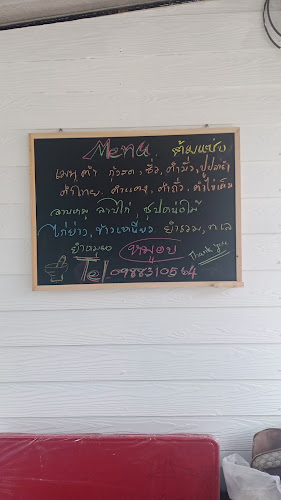 Menu ส้มแซ่บ
เมนู ตำ กุ้งสด, ซั่ว, ตำมั่ว, ปูปลาร้า
ตำไทย, ตำแตง, ตำถั่ว, ตำไข่เค็ม
ลาบหมู ลาบไก่, ซุปหน่อไม้
ไก่ย่าง, ข้าวเหนียว ยำรวม, ทะเล
ยำหมูยอ หมูอบ Thank you
Tel 0988310564